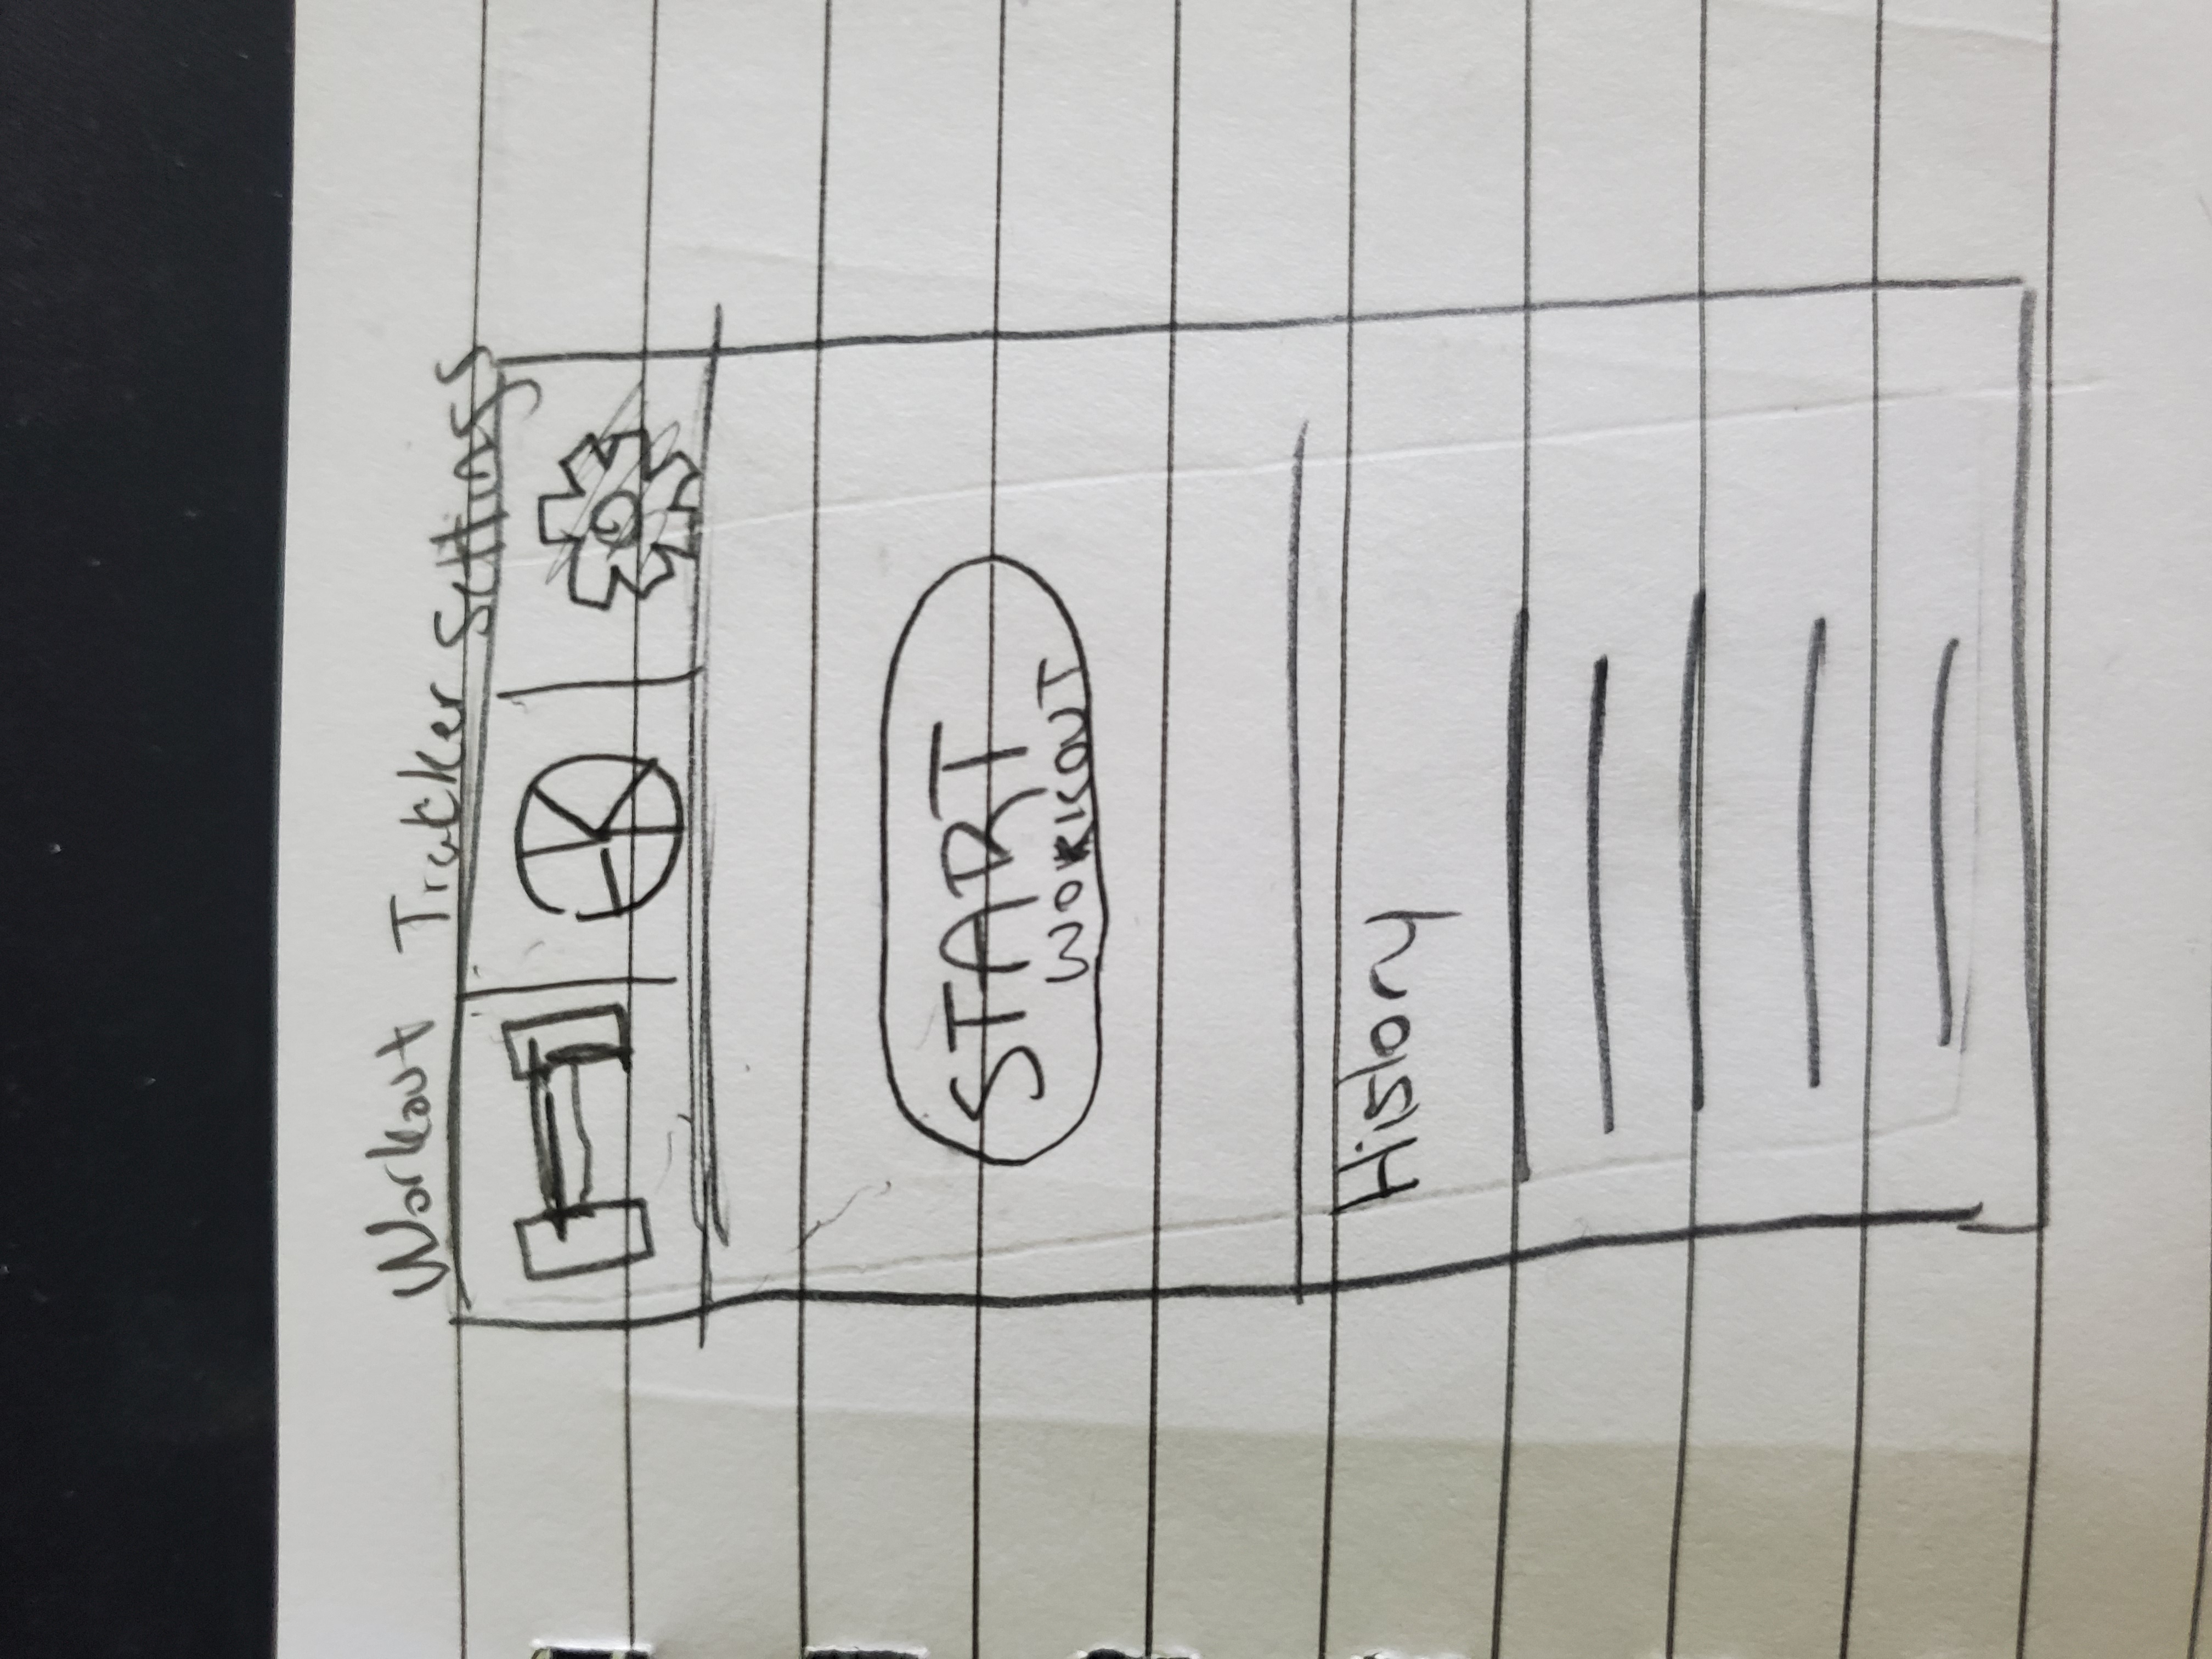 Workout Tracker Settings
START
WORKOUT
History